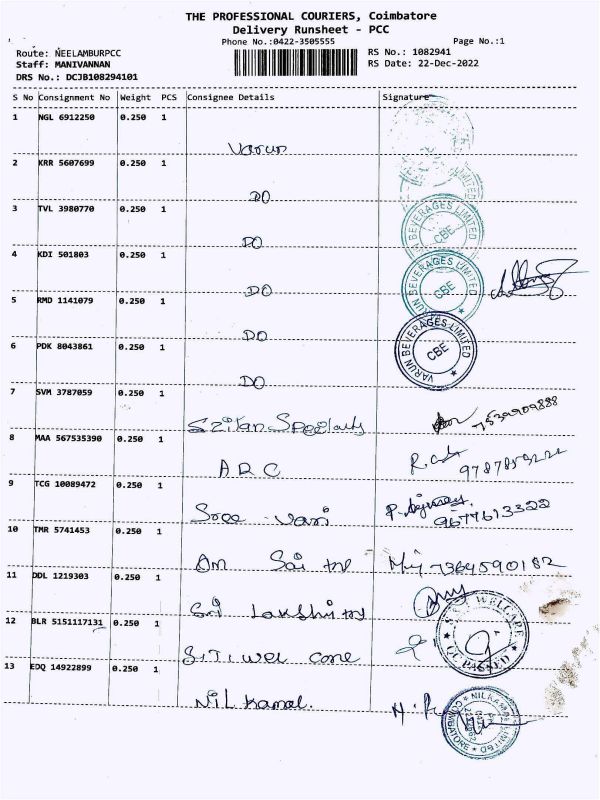 THE PROFESSIONAL COURIERS, Coimbatore
Delivery Runsheet - PCC
Phone No.:0422-3505555 Page No.:1
Route: NEELAMBURPCC RS No.: 1082941
Staff: MANIVANNAN RS Date: 22-Dec-2022
DRS No.: DCJB108294101
S No Consignment No Weight PCS Consignee Details Signature
1 NGL 6912250 0.250 1
Varun
2 KRR 5607699 0.250 1
DO
3 TVL 3980770 0.250 1
DO
VARUN BEVERAGES LIMITED CBE
4 KDI 501803 0.250 1
DO
VARUN BEVERAGES LIMITED CBE
5 RMD 1141079 0.250 1
DO
VARUN BEVERAGES LIMITED CBE
6 PDK 8043861 0.250 1
DO
7 SVM 3787059 0.250 1
7539909888
8 MAA 567535390 0.250 1
ARC
9 TCG 10089472 0.250 1
Sree vari 9677613322
10 TMR 5741453 0.250 1
Om Sai
11 DDL 1219303 0.250 1
Sri Lakshmi
12 BLR 5151117131 0.250 1
13 EDQ 14922899 0.250 1
Nilkamal.
COIMBATORE